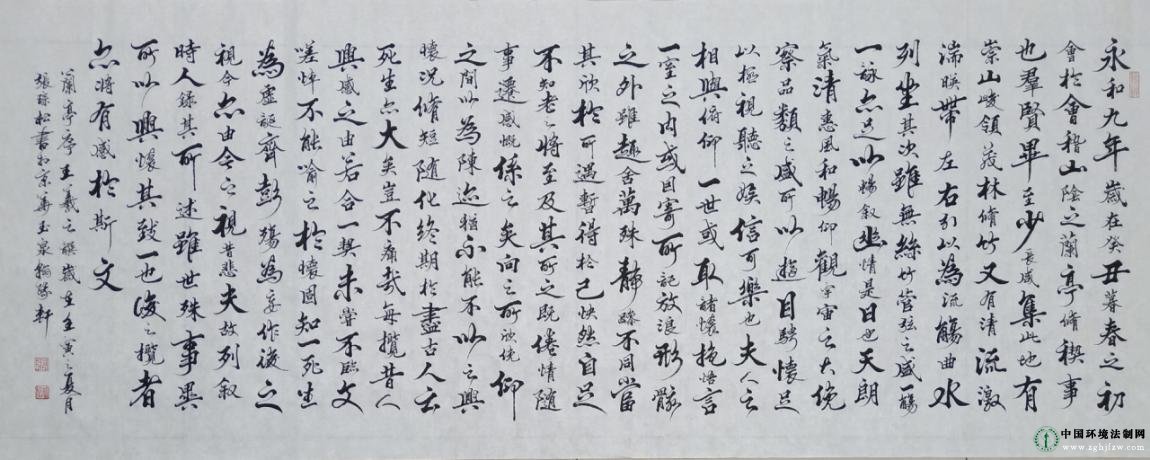 永和九年歲在癸丑暮春之初
會於會稽山陰之蘭亭脩稧事
也羣賢畢至少長咸集此地有
崇山峻領茂林脩竹又有清流激
湍暎帶左右引以為流觴曲水
列坐其次雖無絲竹管弦之盛一觴
一詠亦足以暢叙幽情是日也天朗
氣清惠風和暢仰觀宇宙之大俛
察品類之盛所以遊目騁懷足
以極視聽之娛信可樂也夫人之
相與俯仰一世或取諸懷抱悟言
一室之内或因寄所託放浪形骸
之外雖趣舍萬殊靜躁不同當
其欣於所遇暫得於己怏然自足
不知老之將至及其所之既倦情隨
事遷感慨係之矣向之所欣俛仰
之間以為陳迹猶不能不以之興
懷況脩短隨化終期於盡古人云
死生亦大矣豈不痛哉每攬昔人
興感之由若合一契未嘗不臨文
嗟悼不能喻之於懷固知一死生
為虛誕齊彭殤為妄作後之
視今亦由今之視昔悲夫故列叙
時人錄其所述雖世殊事異
所以興懷其致一也後之攬者
亦將有感於斯文
蘭亭序王羲之撰歲在壬寅之夏月
張松書於京華玉泉軒
中国环境法制网
www.zghjfzw.com